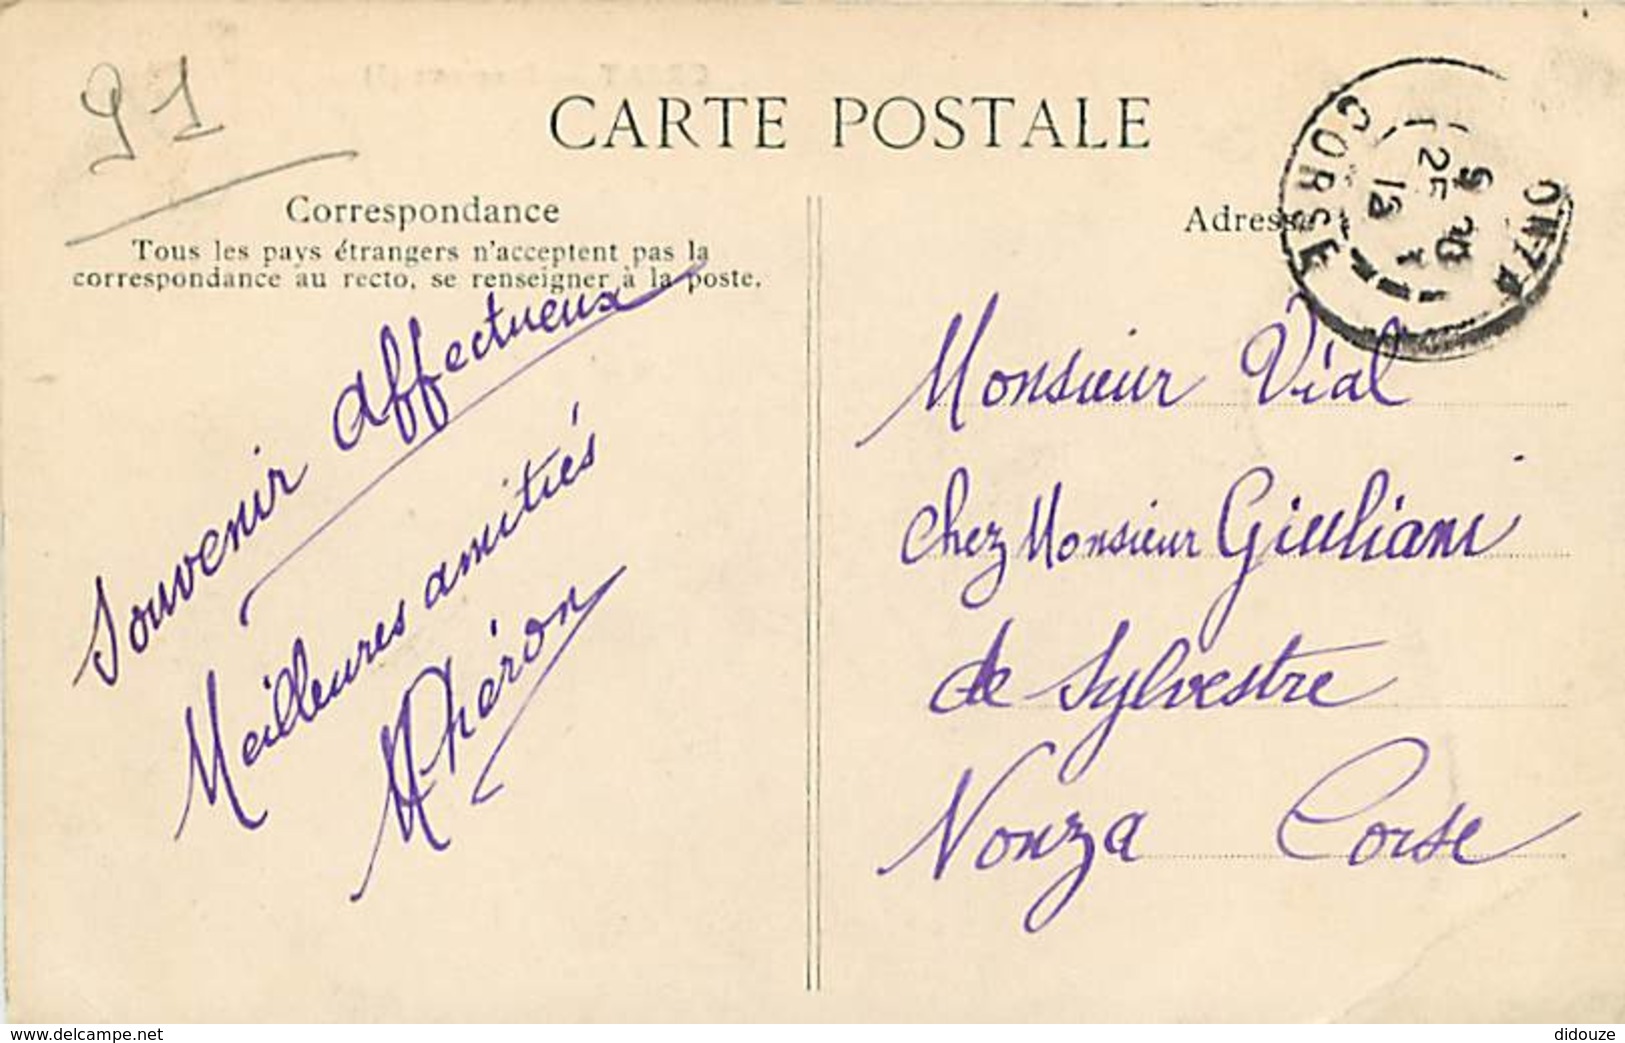 91
CARTE POSTALE
Correspondance
Tous les pays étrangers n'acceptent pas la
correspondance au recto, se renseigner à la poste.
Souvenir affectueux
Meilleures amitiés
Adresse
CORSE
Monsieur Vial
chez Monsieur Giuliani
de Sylvestre
Nonza Corse
delcampe.net
didouze